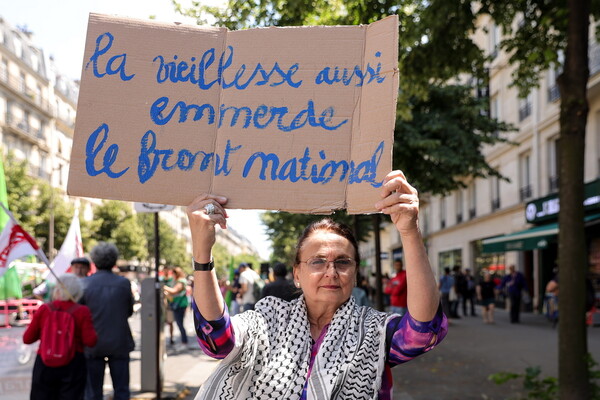 la vieillesse aussi
emmerde
le front national